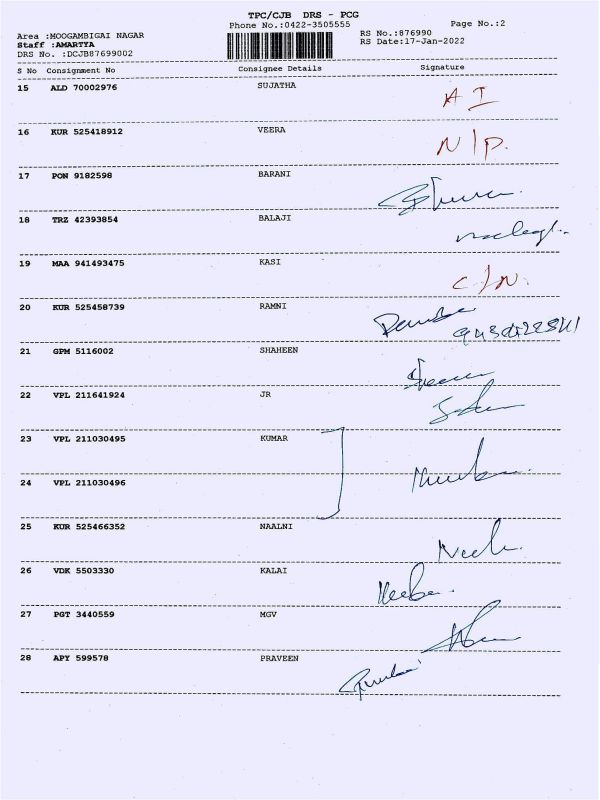 TPC/CJB DRS - PCG
Phone No.:0422-3505555
Page No.:2
Area :MOOGAMBIGAI NAGAR
RS No.:876990
Staff :AMARTYA
RS Date:17-Jan-2022
DRS No. :DCJB87699002
S No Consignment No Consignee Details Signature
15 ALD 70002976 SUJATHA A I
16 KUR 525418912 VEERA N/P.
17 PON 9182598 BARANI
18 TRZ 42393854 BALAJI
19 MAA 941493475 KASI C/N.
20 KUR 525458739 RAMNI
21 GPM 5116002 SHAHEEN
22 VPL 211641924 JR
23 VPL 211030495 KUMAR
24 VPL 211030496
25 KUR 525466352 NAALNI
26 VDK 5503330 KALAI
27 PGT 3440559 MGV
28 APY 599578 PRAVEEN